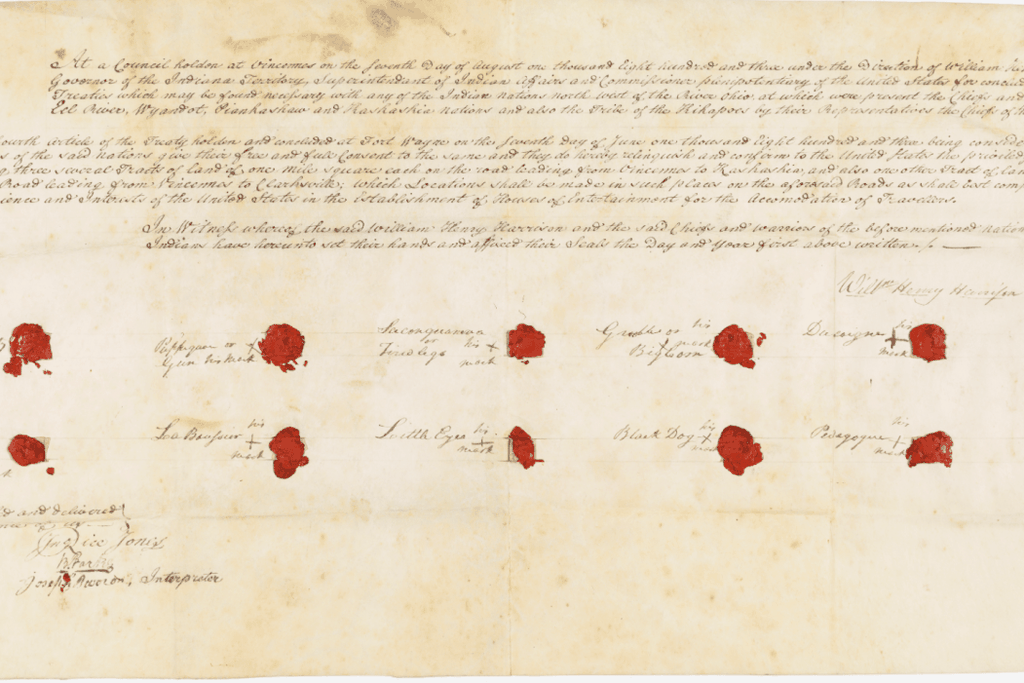 At a Council holden at Vincennes on the seventh Day of August one thousand eight hundred and three under the Direction of William
Governor of the Indiana Territory, Superintendent of Indian Affairs and Commissioner plenipotentiary of the United States for
Treaties which may be found necessary with any of the Indian nations north west of the River Ohio, at which were present the Chiefs and
Eel River, Wyandot, Piankashaw and Kaskaskia nations and also the Tribe of the Kikapoes by their Representatives the Chiefs of the
Article of the Treaty holden and concluded at Fort Wayne on the seventh day of June one thousand eight hundred and three being
of the said nations give their free and full Consent to the same and they do hereby relinquish and confirm to the United States the
three several Tracts of Land of one mile square each on the road leading from Vincennes to Kaskaskia, and also one other Tract of Land
Road leading from Vincennes to Clarksville; which Locations shall be made in such places on the aforesaid Roads as shall best
and Interests of the United States in the establishment of Houses of Entertainment for the Accomodation of Travellers.
In Witness whereof the said William Henry Harrison and the said Chiefs and warriors of the before mentioned
Indians have hereunto set their hands and affixed their Seals the Day and Year first above written.
Will<sup>m</sup> Henry Harrison
or Gun his mark
or his mark
or his mark Bigleom
Ducoigne his mark
his mark
Little Eyes his mark
Black Dog his mark
Pedagogue his mark
and delivered
Rice Jones
B. Parke
Joseph Interpreter